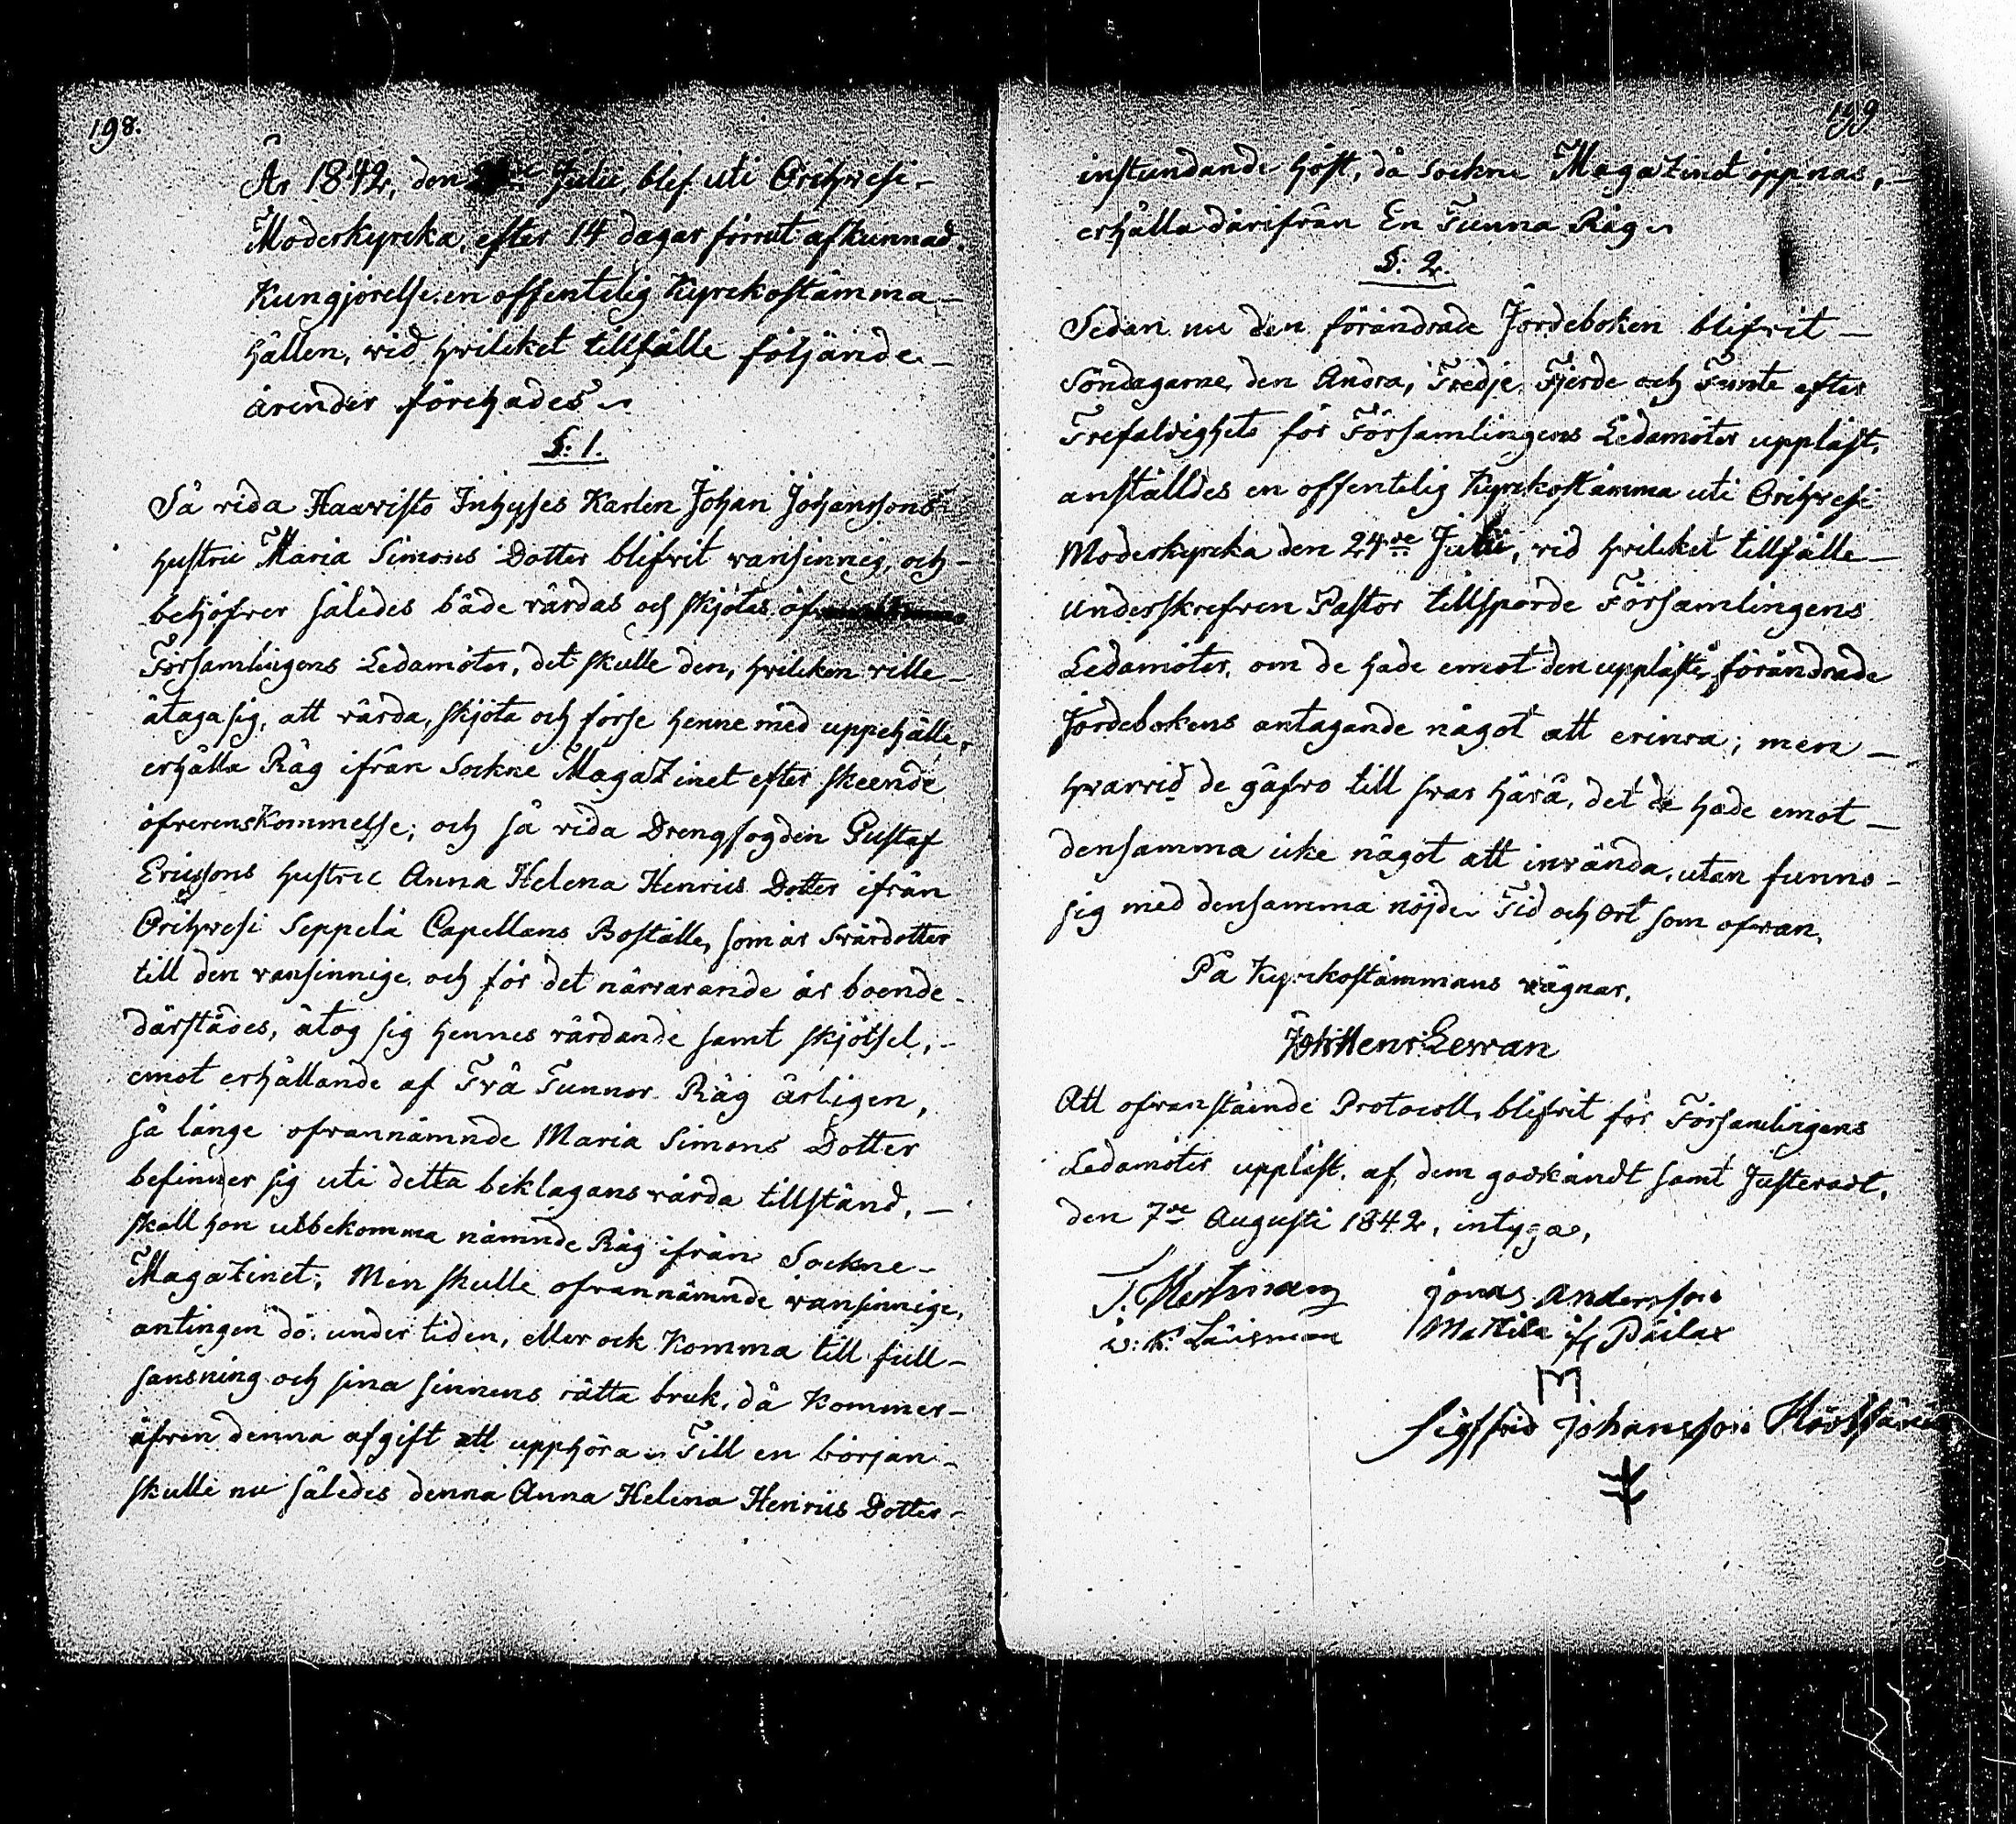 198.
År 1842, den Julii, blef uti Orihvesi
Moderkyrcka, efter 14 dagar förrut afkunnad
Kungjörelse en offentelig Kyrckostämma
hållen, vid hvilcket tillfälle följande
ärender förehades.
§: 1.
Så vida Haavisto Inhyses Karlen Johan Johanssons
hustru Maria Simons Dotter blifvit vansinnig, och
behöfver således både vårdas och skjötas
Församlingens Ledamöter, det skulle den, hvilcken ville
åtaga sig, att vårda, skjöta och förse henne med uppehälle,
erhålla Råg ifrån Sockne Magazinet efter skeende
öfverenskommelse; och så vida Drengfogden Gustaf
Ericssons hustru Anna Helena Henrics Dotter ifrån
Orihvesi Seppelä Capellans Boställe, som är Svärdotter
till den vansinnige och för det närvarande är boende
därstädes, åtog sig hennes vårdande samt skjötsel,
emot erhållande af Två Tunnor Råg årligen,
så länge ofvannämnde Maria Simons Dotter
befinner sig uti detta beklagansvärda tillstånd,
skall hon utbekomma nämnde Råg ifrån Sockne
Magazinet; Men skulle ofvannämnde vansinnige,
antingen dö under tiden, eller ock komma till full
sansning och sina sinnens rätta bruk, då kommer
äfven denna afgift att upphöra. Till en början
skulle nu således denna Anna Helena Henrics Dotter
199
instundande höst, då Sockne Magazinet öppnas,
erhålla därifrån En Tunna Råg.
§: 2.
Sedan nu den förändrade Jordeboken blifvit
Söndagarne, den Andra, Tredje, Fjerde och Femte efter
Trefaldighets för Församlingens Ledamöter uppläst,
anställdes en offentelig Kyrckostämma uti Orihvesi
Moderkyrcka den 24de Julii, vid hvilcket tillfälle
Underskrefven Pastor tillsporde Församlingens
Ledamöter, om de hade emot den uppläste, förändrade
Jordebokens antagande något att erinra; men
hvarvid de gåfvo till svar härå, det de hade emot
densamma icke något att invända, utan funno
sig med densamma nöjde. Tid och Ort som ofvan.
På Kyrckostämmans vägnar,
Joh: Henr: Levan
Att ofvanstående Protocoll, blifvit för Församlingens
Ledamöter uppläst, af dem godkändt samt Justeradt,
den 7de Augusti 1842, intyga,
Jonas Andersson
Sigffrid Johansson